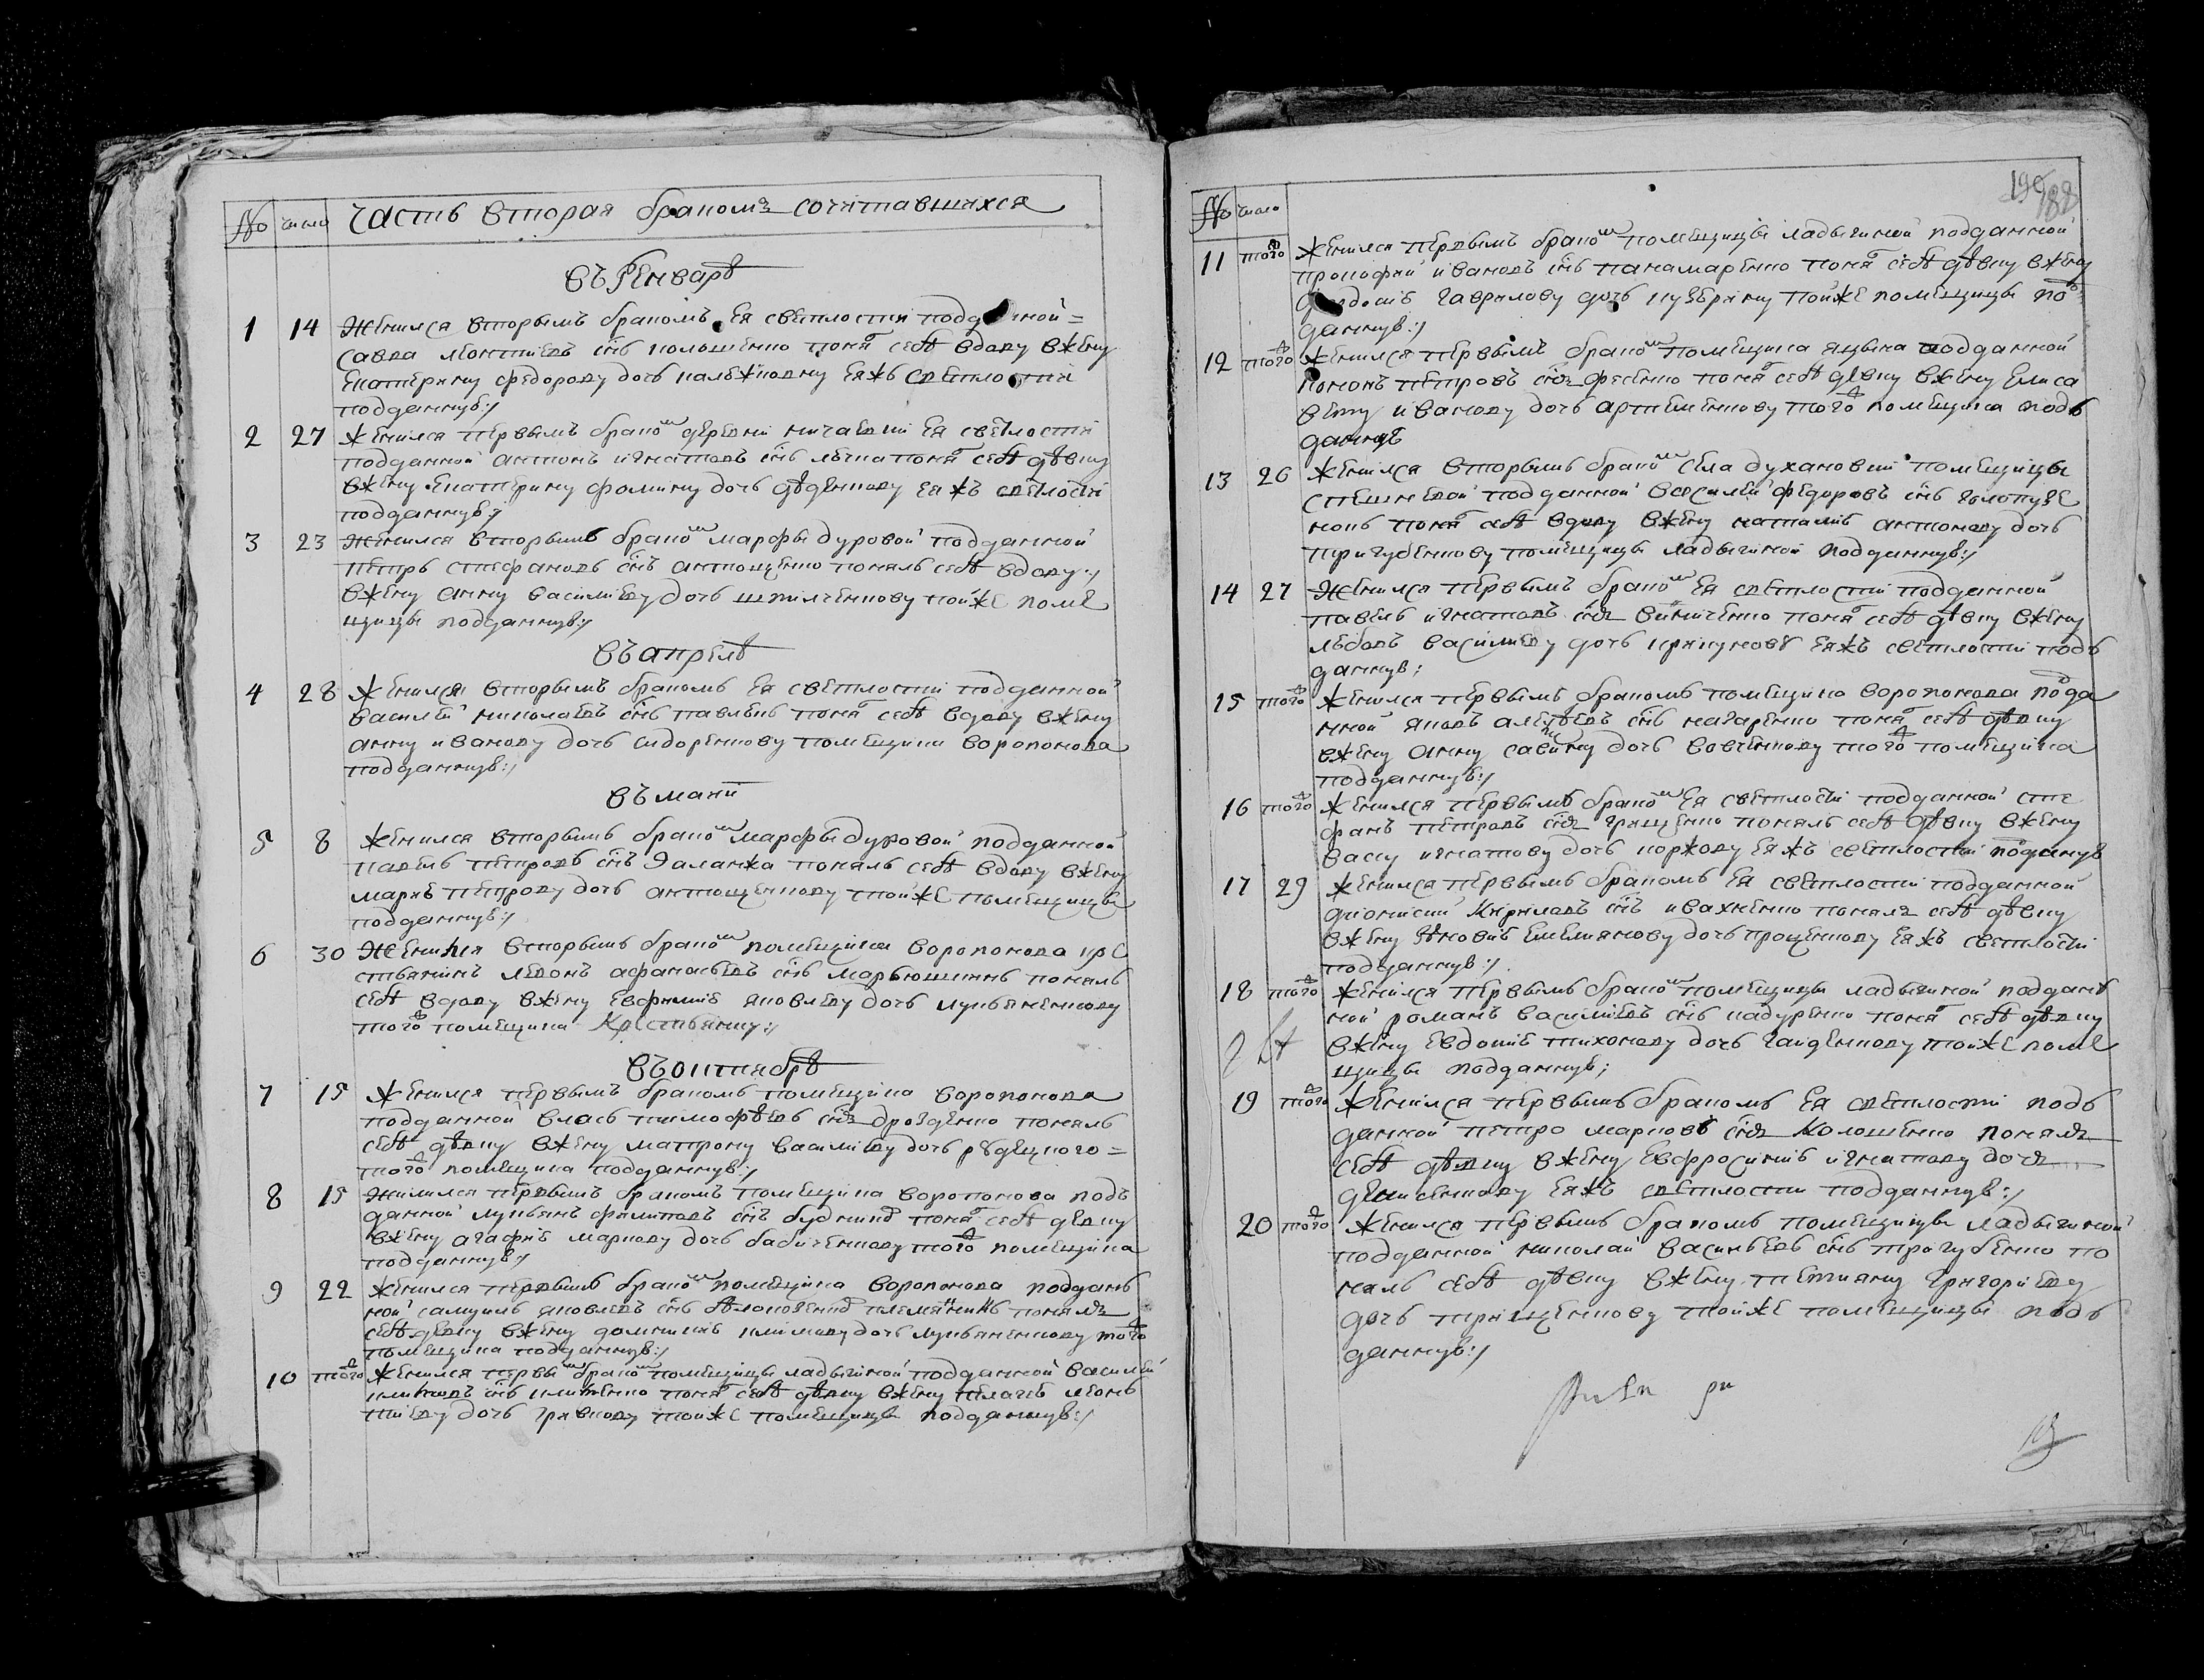 № число Часть вторая бракомъ сочитавшихся
Въ Генварѣ
1 14 Женился вторымъ бракомъ Ея светлости подданной=
Савва леонтиевъ снъ колошенко поня себѣ вдову вжену
Екатерину федорову дочь Еяжъ светлости
подданную:/
2 27 женился первымъ брако деревни ничаевки Ея светлости
подданной антонъ игнатовъ снъ поня себѣ дѣвку
вжену Екатерину фомину дочь дѣденкову Еяжъ светлости
подданную:/
3 23 женился вторымъ брако марфы дуровой подданной
петръ стефановъ снъ антощенко понялъ себѣ вдову:/
вжену анну василиеву дочь шпилченкову тойже поме
щицы подданную:/
Въ апрелѣ
4 28 женился вторымъ бракомъ Ея светлости подданной
василей николаевъ снъ поня себѣ вдову вжену
анну иванову дочь сидоренкову помещика воропонова
подданную:/
въ маии
5 8 женился вторымъ брако марфы дуровой подданной
павелъ петровъ снъ Заланжа понялъ себѣ вдову вжену
марию петрову дочь антощенкову тойже помещицы
подданную:/
6 30 Женился вторымъ брако помещика воропонова кре
стьянинъ левонъ афанасьевъ снъ марьюшкинъ понялъ
себѣ вдову вжену Евфимию яковлеву дочь лукьяненкову
того помещика Крестьянку:/
въ октиябрѣ
7 15 женился первымъ бракомъ помещика воропонова
подданной власъ тимофѣевъ снъ дрозденко понялъ
себѣ дѣвку вжену матрону василиеву дочь рудецкого=
того помещика подданную:/
8 15 женился первымъ бракомъ помещика воропонова подъ
данной лукьянъ филиповъ снъ будникъ поня себѣ дѣвку
вжену агафию маркову дочь бабиченкову того помещика
подданную:/
9 22 женился первымъ брако помещика воропонова поддань
ной самуилъ яковлевъ снъ племянникъ понялъ
себѣ девку вжену домникию климову дочь лукьяненкову того
помещика подданную:/
10 того женился первы брако помещицы ладыгиной подданной василей
снъ поня себѣ дѣвку вжену пелагию леонь
тиеву дочь грявкову тойже помещицы подданную:/
190
188
№ число
11 того женился первымъ брако помещицы ладыгиной подданной
прокофий ивановъ снъ панамаренко поня себѣ дѣвку вжену
гаврилову дочь тойже помещицы по
данную:/
12 того женился первымъ брако помещика яцына подданной
кононъ петровъ снъ фесенко поня себѣ девку вжену Елиса
вету иванову дочь артеменкову того помещика подъ
данную
13 26 женился вторымъ брако села духановки помещицы
стешневой подданной василей федоровъ снъ
поня себѣ вдову вжену наталию антонову дочь
тригубенкову помещицы ладыгиной подданную:/
14 27 женился первымъ брако Ея светлости подданной
павелъ игнатовъ снъ поня себѣ дѣвку вжену
любовь василиеву дочь Еяжъ светлости подъ
данную;
15 того женился первымъ бракомъ помещика воропонова пода
нной яковъ алеѯѣевъ снъ нагаренко поня себѣ дѣвку
вжену анну савину дочь вовченкову того помещика
подданную:/
16 того женился первымъ брако Ея светлости подданной сте
фанъ петровъ снъ грищенко понялъ себѣ дѣвку вжену
васу игнатову дочь коржову Еяжъ светлости поданую
17 29 женился первымъ бракомъ Ея светлости подданной
дионисий Кириловъ снъ ивахненко понялъ себѣ дѣвку
вжену зѣновию Емелиянову дочь проценкову Еяжъ светлости
подданную:/
18 того женился первымъ брако помещицы ладыгиной поддань
ной романъ василиевъ снъ кадуренко поня себѣ дѣвку
вжену Евдокию тихонову дочь гайденкову тойже поме
щицы подданную;
19 того женился первымъ бракомъ Ея светлости подъ
данной петро марковъ снъ Колошенко понялъ
себѣ дѣвку вжену Евфросинию игнатову дочь
денисенкову Еяжъ светлости подданную:/
20 того женился первымъ бракомъ помещицы ладыгиной
подданной николай васильевъ снъ тригубенко по
нялъ себѣ дѣвку вжену тетияну григориеву
дочь трищенкову тойже помещицы подъ
данную:/